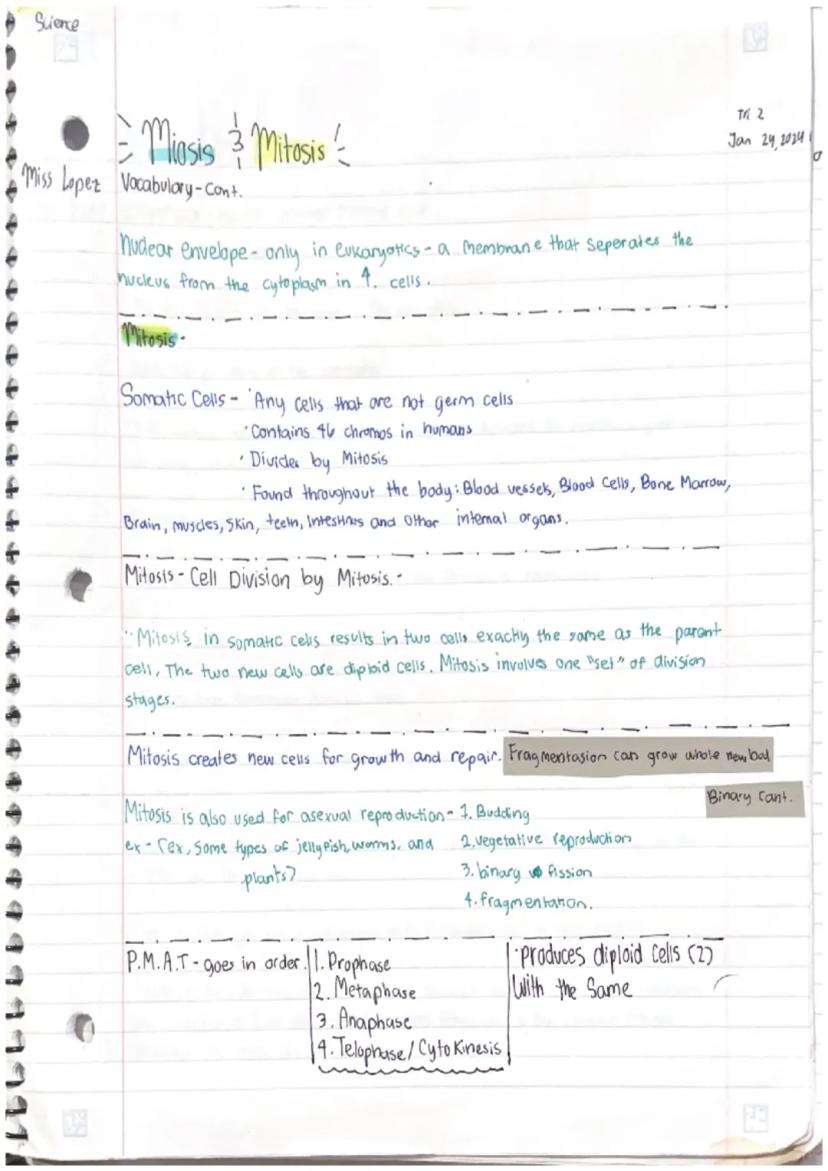 Science
Tri 2
Jan 24, 2024
Miosis & Mitosis
Miss Lopez
Vocabulary-Cont.
Nuclear envelope - only in eukaryotics - a membrane that seperates the
nucleus from the cytoplasm in ↑. cells.
Mitosis -
Somatic Cells - · Any cells that are not germ cells
· Contains 46 chromos in humans
· Divides by Mitosis
· Found throughout the body: Blood vessels, Blood Cells, Bone Marrow,
Brain, muscles, Skin, teeth, Intestines and other internal organs.
Mitosis - Cell Division by Mitosis. -
Mitosis in somatic cells results in two cells exactly the same as the parent
cell, The two new cells are diploid cells. Mitosis involves one "set" of division
stages.
Mitosis creates new cells for growth and repair. Fragmentasion can grow whole new bod
Binary Cant.
Mitosis is also used for asexual reproduction - 1. Budding
ex - (ex, Some types of jellyfish, worms, and 2. vegetative reproduction
plants) 3. binary fission
4. fragmentation.
P.M.A.T - goes in order. 1. Prophase
2. Metaphase
3. Anaphase
4. Telophase / CytoKinesis
· Produces diploid cells (2)
With the Same